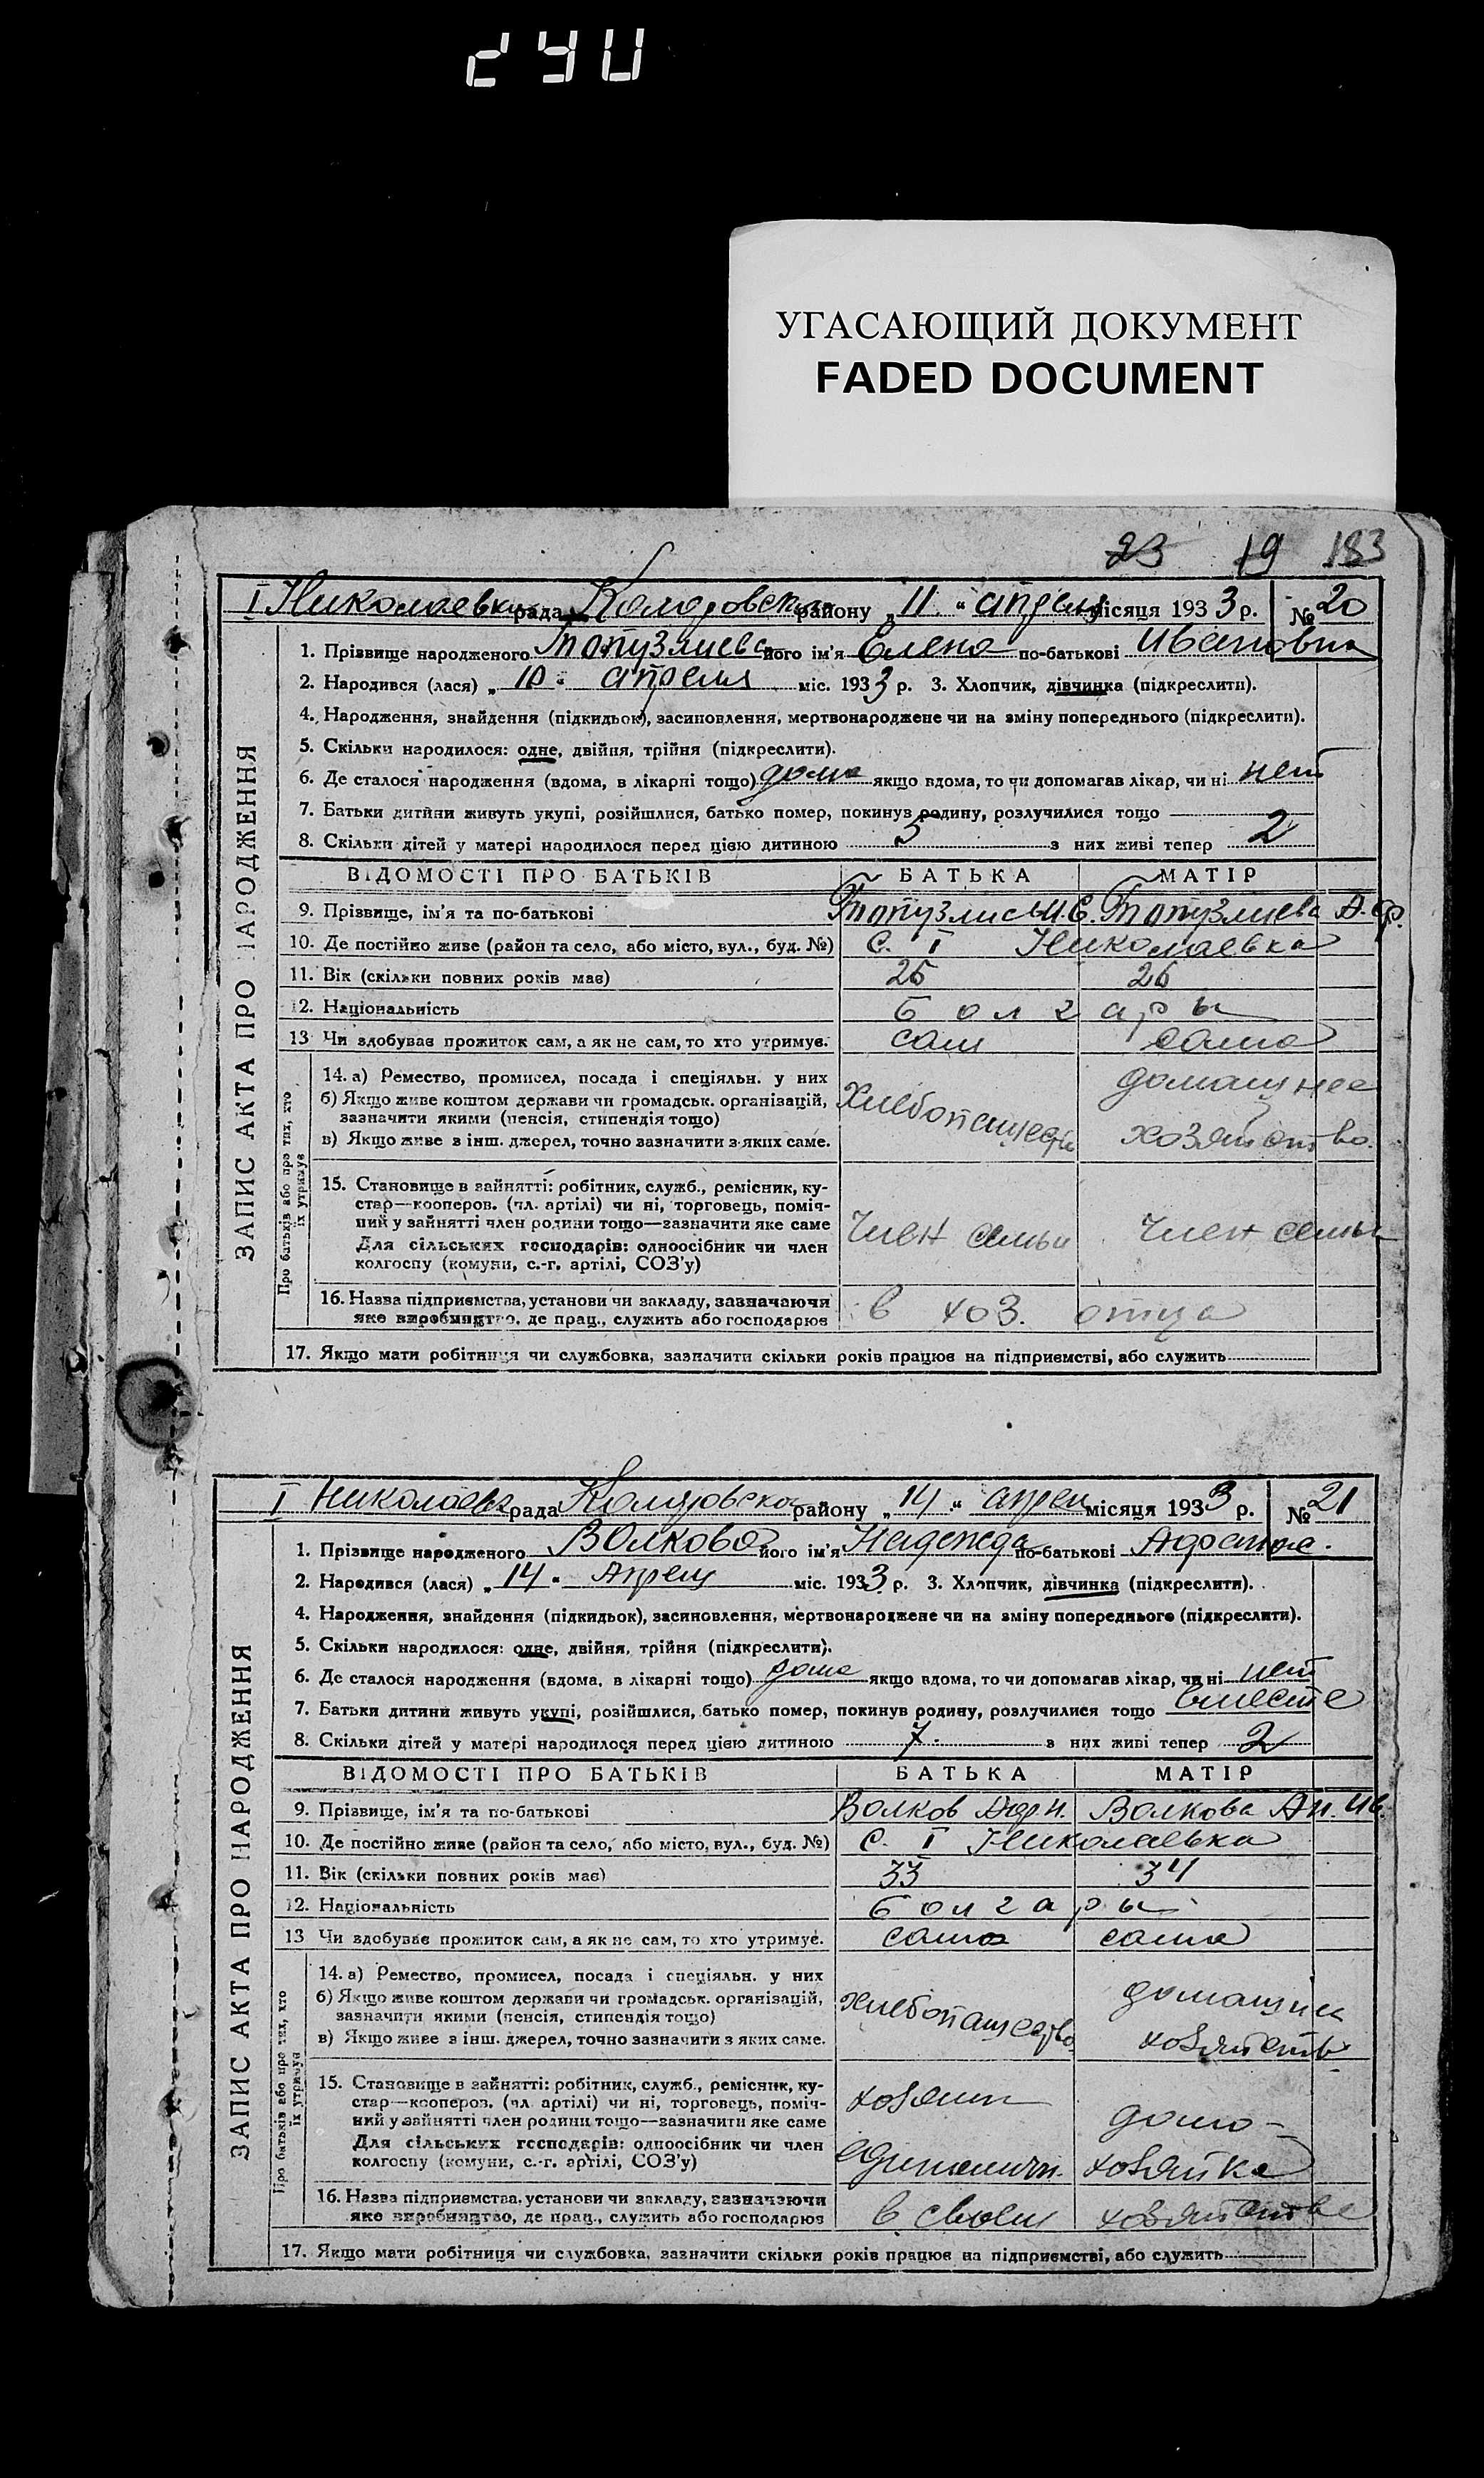 240
УГАСАЮЩИЙ ДОКУМЕНТ
FADED DOCUMENT
23 19 183
ЗАПИС АКТА ПРО НАРОДЖЕННЯ
I Николаевка рада району „ 11 “ апреля місяця 193 3 р. № 20
1. Прізвище народженого Топузлиева його ім'я Елена по-батькові Ивановна
2. Народився (лася) „ 10 “ апреля міс. 193 3 р. 3. Хлопчик, дівчинка (підкреслити).
4. Народження, знайдення (підкидьок), засиновлення, мертвонароджене чи на зміну попереднього (підкреслити).
5. Скільки народилося: одне, двійня, трійня (підкреслити).
6. Де сталося народження (вдома, в лікарні тощо) дома якщо вдома, то чи допомагав лікар, чи ні нет
7. Батьки дитини живуть укупі, розійшлися, батько помер, покинув родину, розлучилися тощо
8. Скільки дітей у матері народилося перед цією дитиною 5 з них живі тепер 2
ВІДОМОСТІ ПРО БАТЬКІВ БАТЬКА МАТІР
9. Прізвище, ім'я та по-батькові Топузлиев И. С. Топузлиева А.
10. Де постійно живе (район та село, або місто, вул., буд. №) с. I Николаевка
11. Вік (скільки повних років має) 25 26
12. Національність болгары
13 Чи здобуває прожиток сам, а як не сам, то хто утримує. сам сама
Про батьків або про тих, хто їх утримує
14. а) Ремество, промисел, посада і спеціяльн. у них
б) Якщо живе коштом держави чи громадськ. організацій,
зазначити якими (пенсія, стипендія тощо)
в) Якщо живе з інш. джерел, точно зазначити з яких саме.
хлебопашество домашнее хозяйство.
15. Становище в зайнятті: робітник, служб., ремісник, ку-
стар—кооперов. (чл. артілі) чи ні, торговець, поміч-
ний у зайнятті член родини тощо—зазначити яке саме
Для сільських господарів: одноосібник чи член
колгоспу (комуни, с.-г. артілі, СОЗ'у)
член семьи член семьи
16. Назва підприємства, установи чи закладу, зазначаючи
яке виробництво, де прац., служить або господарює
в хоз. отца
17. Якщо мати робітниця чи службовка, зазначити скільки років працює на підприємстві, або служить
ЗАПИС АКТА ПРО НАРОДЖЕННЯ
I рада району „ 14 “ місяця 193 3 р. № 21
1. Прізвище народженого Волкова його ім'я Надежда по-батькові
2. Народився (лася) „ 14 “ Апреля міс. 193 3 р. 3. Хлопчик, дівчинка (підкреслити).
4. Народження, знайдення (підкидьок), засиновлення, мертвонароджене чи на зміну попереднього (підкреслити).
5. Скільки народилося: одне, двійня, трійня (підкреслити).
6. Де сталося народження (вдома, в лікарні тощо) дома якщо вдома, то чи допомагав лікар, чи ні нет
7. Батьки дитини живуть укупі, розійшлися, батько помер, покинув родину, розлучилися тощо вместе
8. Скільки дітей у матері народилося перед цією дитиною 7. з них живі тепер 2
ВІДОМОСТІ ПРО БАТЬКІВ БАТЬКА МАТІР
9. Прізвище, ім'я та по-батькові Волков Волкова Ан. Ив.
10. Де постійно живе (район та село, або місто, вул., буд. №) с. I Николаевка
11. Вік (скільки повних років має) 33 34
12. Національність болгары
13 Чи здобуває прожиток сам, а як не сам, то хто утримує. сама
Про батьків або про тих, хто їх утримує
14. а) Ремество, промисел, посада і спеціяльн. у них
б) Якщо живе коштом держави чи громадськ. організацій,
зазначити якими (пенсія, стипендія тощо)
в) Якщо живе з інш. джерел, точно зазначити з яких саме.
хлебопашество
15. Становище в зайнятті: робітник, служб., ремісник, ку-
стар—кооперов. (чл. артілі) чи ні, торговець, поміч-
ний у зайнятті член родини тощо—зазначити яке саме
Для сільських господарів: одноосібник чи член
колгоспу (комуни, с.-г. артілі, СОЗ'у)
хозяин домо-
единоличн. хозяйка
16. Назва підприємства, установи чи закладу, зазначаючи
яке виробництво, де прац., служить або господарює
в своем хозяйстве
17. Якщо мати робітниця чи службовка, зазначити скільки років працює на підприємстві, або служить